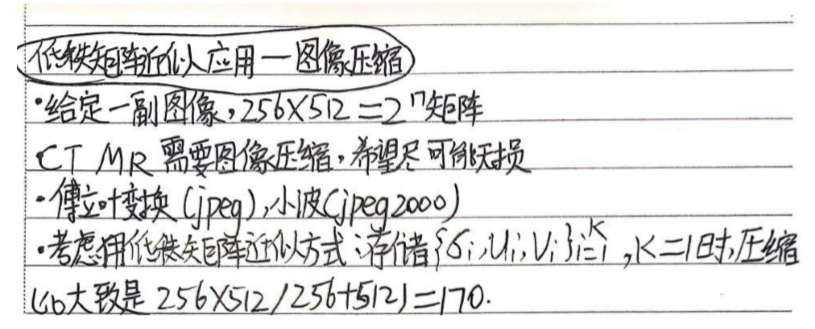 低秩矩阵近似应用—图像压缩
·给定一副图像,256×512=2^17矩阵
CT MR 需要图像压缩,希望尽可能无损
·傅立叶变换(jpeg),小波(jpeg2000)
·考虑用低秩矩阵近似方式:存储{σi,ui,vi}_{i=1}^K,K=1时,压缩
比大致是 256×512/256+512)=170.